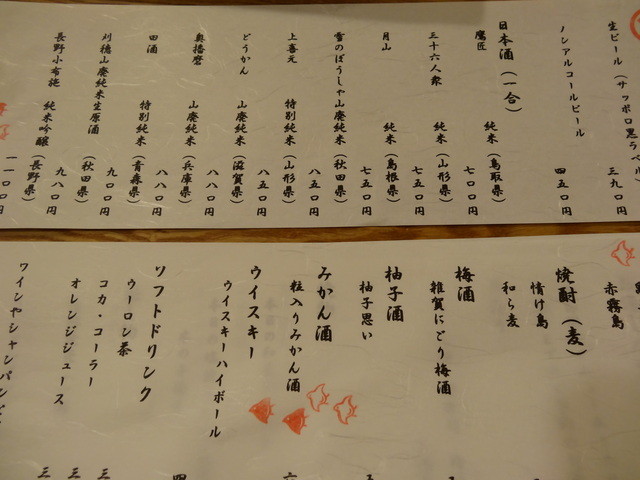 生ビール（サッポロ黒ラベル） 三九〇円
ノンアルコールビール 四五〇円
日本酒（一合）
鷹匠 純米（鳥取県） 七〇〇円
三十六人衆 純米（山形県） 七五〇円
月山 純米（島根県） 七五〇円
雪のぼうしゃ 山廃純米（秋田県） 八五〇円
上喜元 特別純米（山形県） 八五〇円
どうかん 山廃純米（滋賀県） 八八〇円
奥播磨 山廃純米（兵庫県） 八八〇円
田酒 特別純米（青森県） 八八〇円
刈穂山廃純米生原酒（秋田県） 九〇〇円
長野小布施 純米吟醸（長野県） 九八〇円
一一〇〇円
赤霧島
焼酎（麦）
情け島
和ら麦
梅酒
雑賀にごり梅酒
柚子酒
柚子思い
みかん酒
粒入りみかん酒
ウイスキー
ウイスキーハイボール
ソフトドリンク
ウーロン茶
コカ・コーラー
オレンジジュース
ワインやシャンパンな